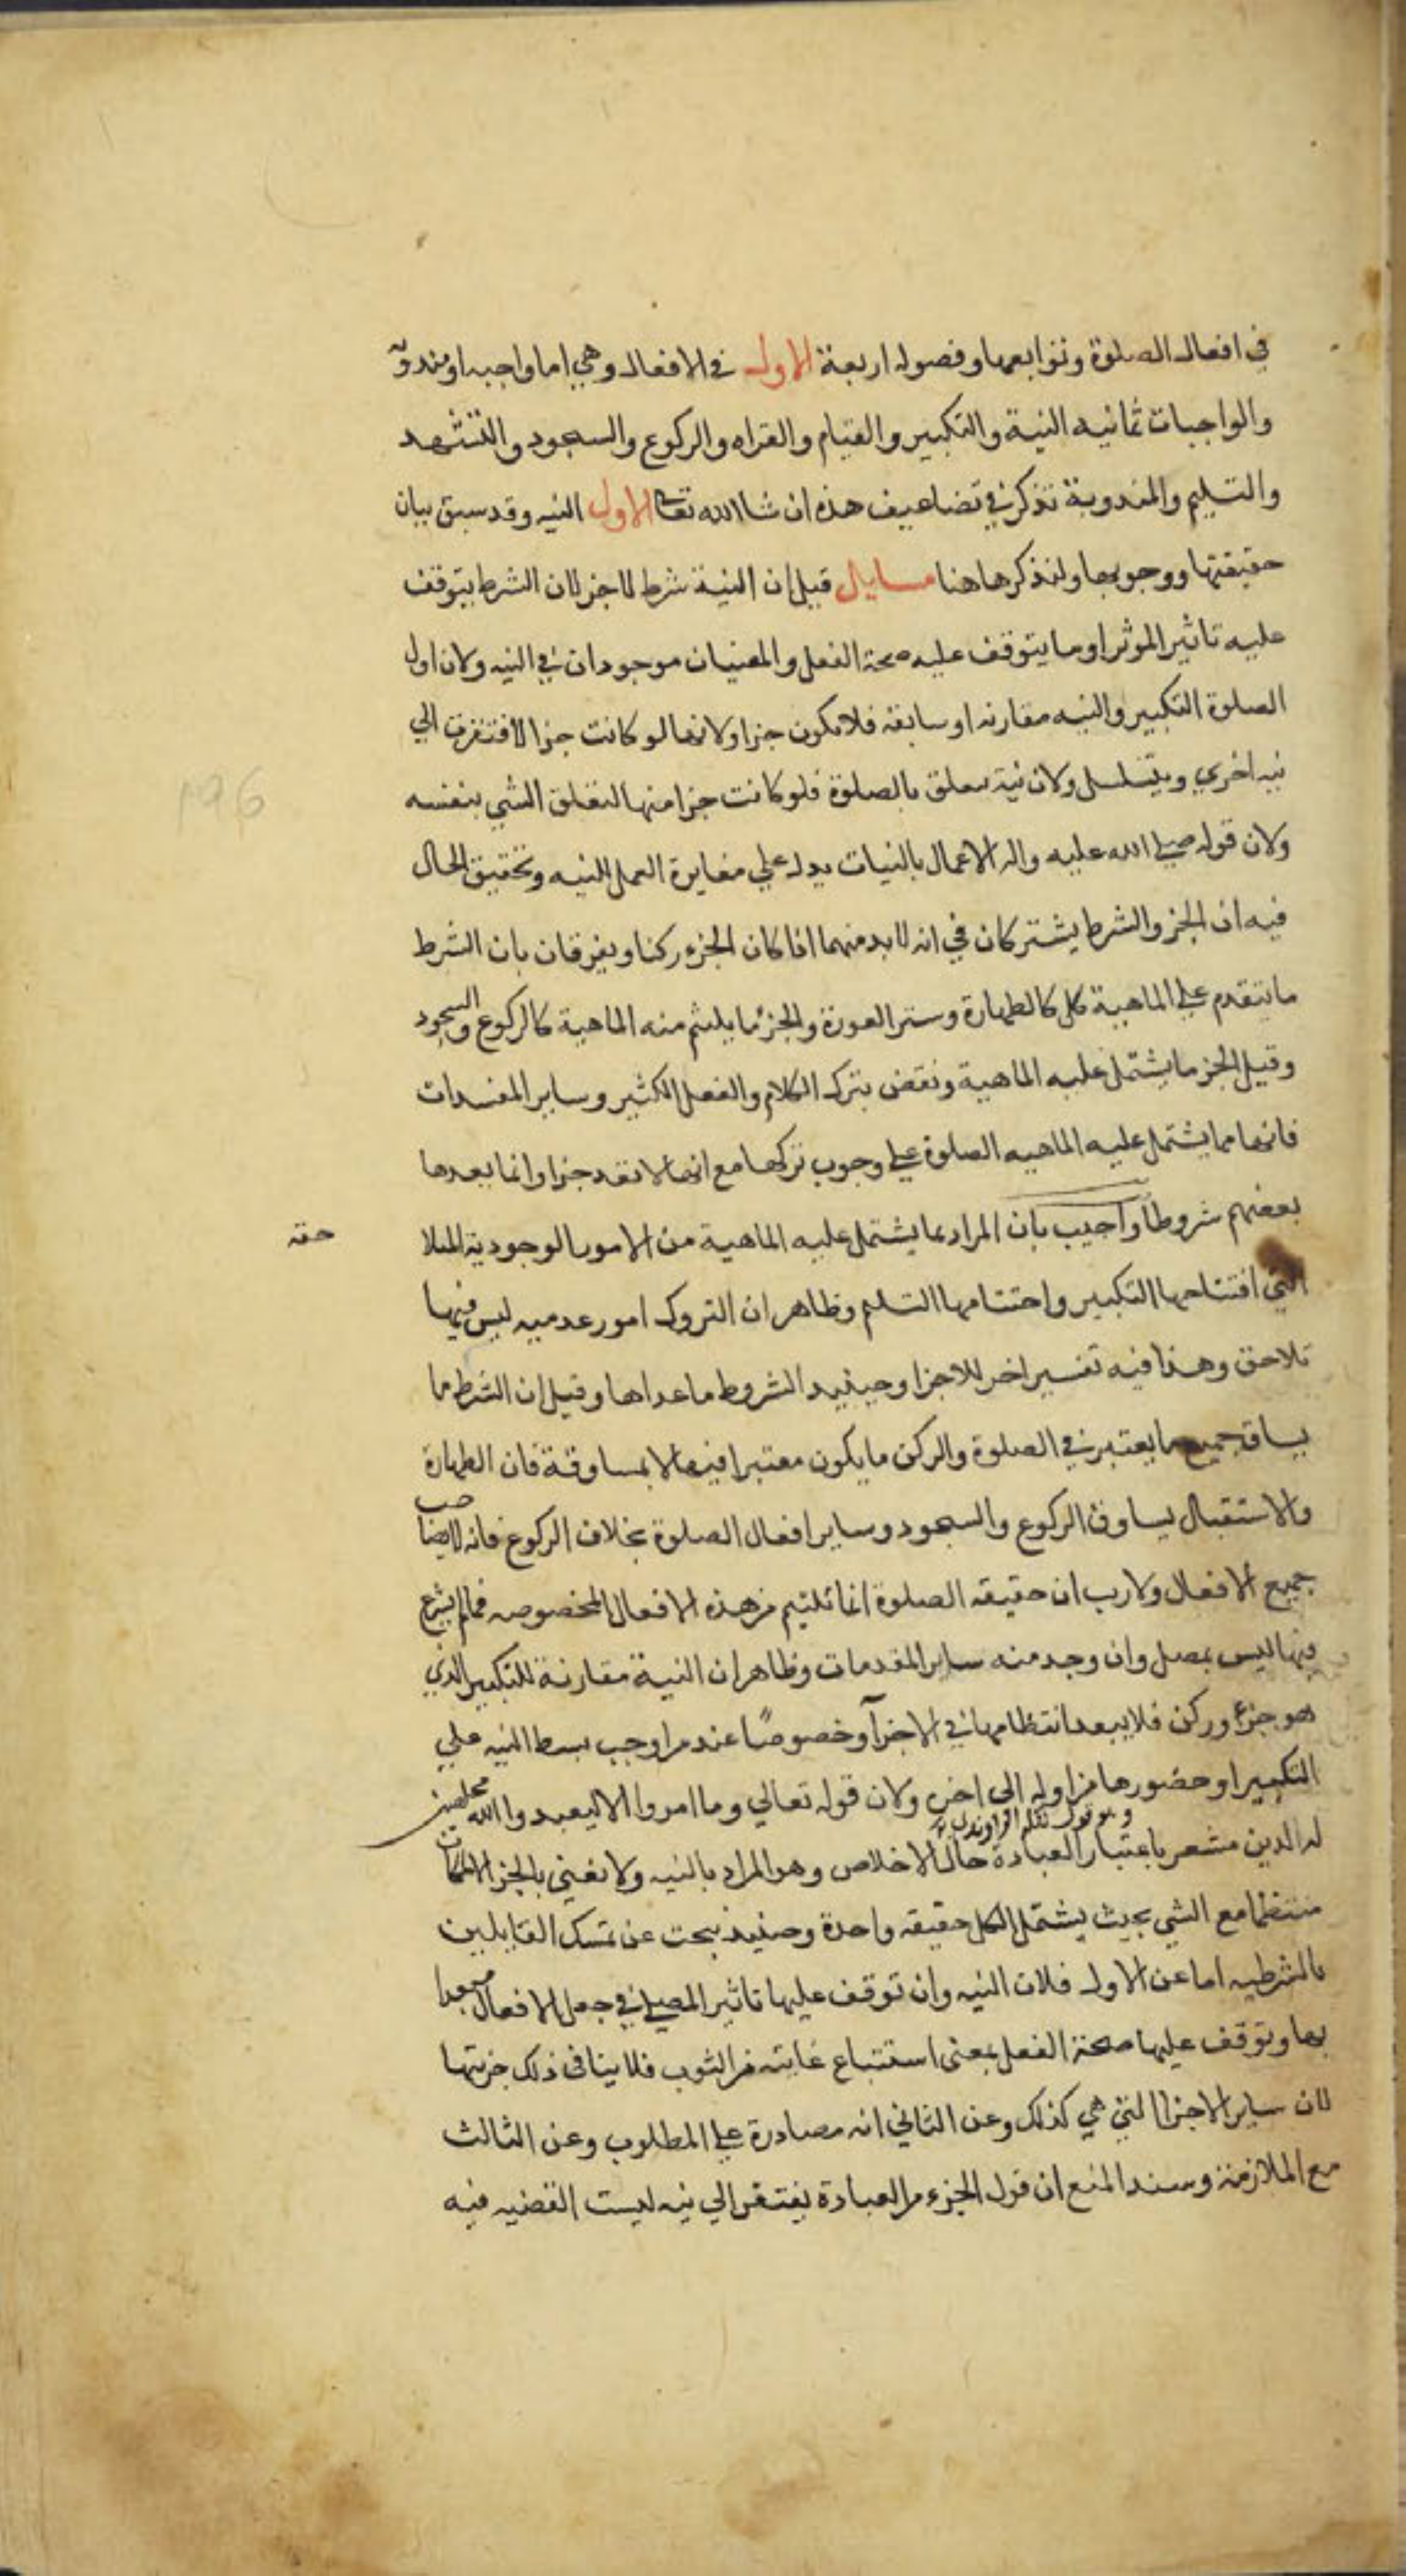 في افعال الصلوة وتوابعها وفصوله اربعة الاول في الافعال وهي اما واجبه او مندوبه
والواجبات ثمانيه النية والتكبير والقيام والقراه والركوع والسجود والتشهد
والتسليم والمندوبة تذكر في تضاعيف هذه ان شاالله تعالى الاول النيه وقد سبق بيان
حقيقتها ووجوبها ولنذكرها هنا مسايل قيل ان النية شرط لا جز لان الشرط يتوقف
عليه تاثير الموثر او ما يتوقف عليه صحة الفعل والمعنيان موجودان في النيه ولان اول
الصلوة التكبير والنيه مقارنه او سابقه فلا يكون جزا ولانها لو كانت جزا لافتقرت الي
نيه اخري ويتسلسل ولان نية تتعلق بالصلوة فلو كانت جزا منها لتعلق الشي بنفسه
ولان قوله صلي الله عليه واله الاعمال بالنيات يدل علي مغايرة العمل للنيه وتحقيق الحال
فيه ان الجز والشرط يشتركان في انه لا بد منهما اذا كان الجزء ركنا ويفرقان بان الشرط
ما يتقدم علي الماهية كل كالطهارة وستر العورة والجزء ما يلتئم منه الماهية كالركوع والسجود
وقيل الجز ما يشتمل عليه الماهية ونقض بترك الكلام والفعل الكثير وساير المفسدات
فانها مما يشتمل عليه الماهيه الصلوة علي وجوب تركها مع انها لا تعد جزا وانما يعدها
بعضهم شروطا واجيب بان المراد بما يشتمل عليه الماهية من الامور الوجودية المتلا
حقه
التي افتتاحها التكبير واختتامها التسليم وظاهر ان التروك امور عدميه ليس فيها
تلاحق وهذا فيه تفسير اخر للاجزا وحينيذ الشروط ما عداها وقيل ان الشرط ما
يساوق جميع ما يعتبر في الصلوة والركن ما يكون معتبرا فيها لا بمساوقة فان الطهارة
والاستقبال يساوق الركوع والسجود وساير افعال الصلوة بخلاف الركوع فانه لا يصاحب
جميع الافعال ولا ريب ان حقيقه الصلوة انما تلتيم من هذه الافعال المخصوصه فما لم يشرع
فيها ليس بمصل وان وجد منه ساير المقدمات وظاهر ان النية مقارنة للتكبير الذي
هو جزء وركن فلا يبعد انتظامها في الاجزآ وخصوصًا عند من اوجب بسط النيه علي
التكبير او حضورها من اوله الى اخره ولان قوله تعالي وما امروا الا ليعبدوا الله مخلصين
له الدين مشعر باعتبار العبادة حال الاخلاص وهو المراد بالنيه ولا نعني بالجز الا ما كان
منتظما مع الشي بحيث يشتمل الكل حقيقه واحدة وحينيذ نبحث عن تمسك القايلين
بالشرطيه اما عن الاول فلان النيه وان توقف عليها تاثير المصلي في جعل الافعال متعبدا
بها وتوقف عليها صحة الفعل بمعنى استتباع غايته من الثوب فلا ينافى ذلك جزيتها
لان ساير الاجزا التي هي كذلك وعن الثاني انه مصادرة علي المطلوب وعن الثالث
منع الملازمة وسند المنع ان قول الجزء من العبادة يفتقر الي نيه ليست القضيه فيه